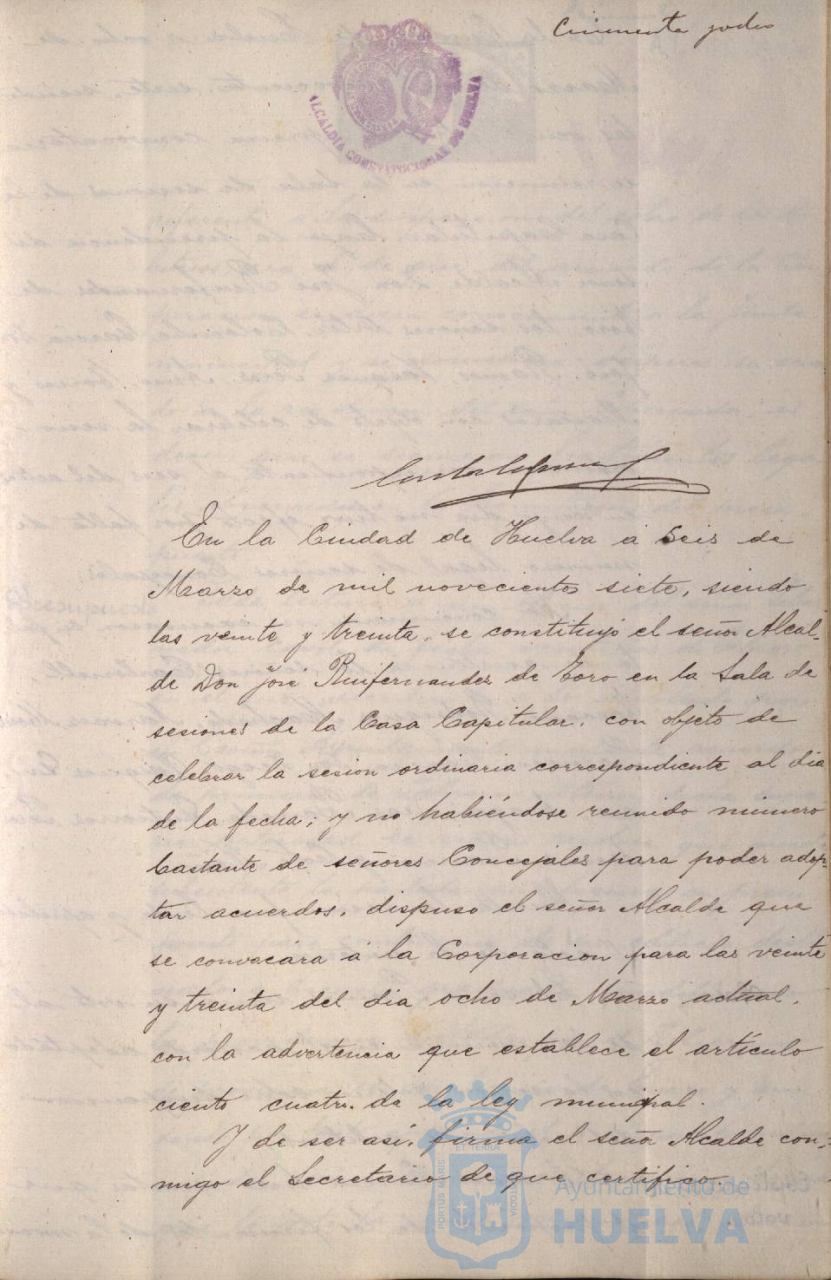 Cincuenta y dos
ALCALDIA CONSTITUCIONAL DE HUELVA
En la Ciudad de Huelva á seis de
Marzo de mil novecientos siete, siendo
las veinte y treinta, se constituyó el señor Alcal-
de Don José Ruifernandez de Toro en la Sala de
sesiones de la Casa Capitular, con objeto de
celebrar la sesion ordinaria correspondiente al dia
de la fecha; y no habiéndose reunido número
bastante de señores Concejales para poder adop-
tar acuerdos, dispuso el señor Alcalde que
se convocára á la Corporacion para las veinte
y treinta del dia ocho de Marzo actual,
con la advertencia que establece el artículo
ciento cuatro de la ley municipal.
Y de ser así, firma el señor Alcalde con-
migo el Secretario de que certifico.
PORTUS MARIS
ET TERRÆ
CUSTODIA
Ayuntamiento de
HUELVA